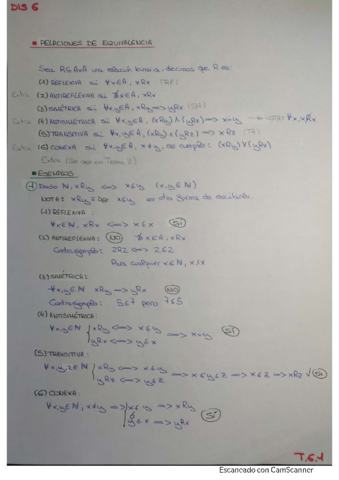 DIS 6
■ RELACIONES DE EQUIVALENCIA
Sea R⊆A×A una relación binaria, decimos que R es:
(1) REFLEXIVA si ∀x∈A, xRx (RF)
Extra (2) ANTIREFLEXIVA si ∄x∈A, xRx
(3) SIMÉTRICA si ∀x,y∈A, xRy ⟹ yRx
Extra (4) ANTISIMÉTRICA si ∀x,y∈A, (xRy)∧(yRx) ⟹ x=y
(5) TRANSITIVA si ∀x,y∈A, (xRy)∧(yRz) ⟹ xRz
Extra (6) CONEXA si ∀x,y∈A, x≠y, se cumple: (xRy)∨(yRx)
■ EJEMPLOS
1 Dado ℕ, xRy ⟺ x≤y (x,y∈ℕ)
NOTA: xRy es otra forma de escribirlo.
(1) REFLEXIVA:
∀x∈ℕ, xRx ⟺ x≤x SÍ
(2) ANTIREFLEXIVA: NO ∄x∈A, xRx
Contraejemplo: 2R2 ⟺ 2≤2
Pues cualquier x∈ℕ, x≤x
(3) SIMÉTRICA:
∀x,y∈ℕ xRy ⟹ yRx NO
Contraejemplo: 5≤7 pero 7≤5
(4) ANTISIMÉTRICA:
∀x,y∈ℕ { xRy ⟺ x≤y
yRx ⟺ y≤x ⟹ x=y SÍ
(5) TRANSITIVA:
∀x,y,z∈ℕ { xRy ⟺ x≤y
yRz ⟺ y≤z ⟹ x≤y≤z ⟹ x≤z ⟹ xRz √ SÍ
(6) CONEXA
∀x,y∈ℕ, x≠y ⟹ x≤y ⟹ xRy
ó
y≤x ⟹ yRx SÍ
T.6.1
Escaneado con CamScanner